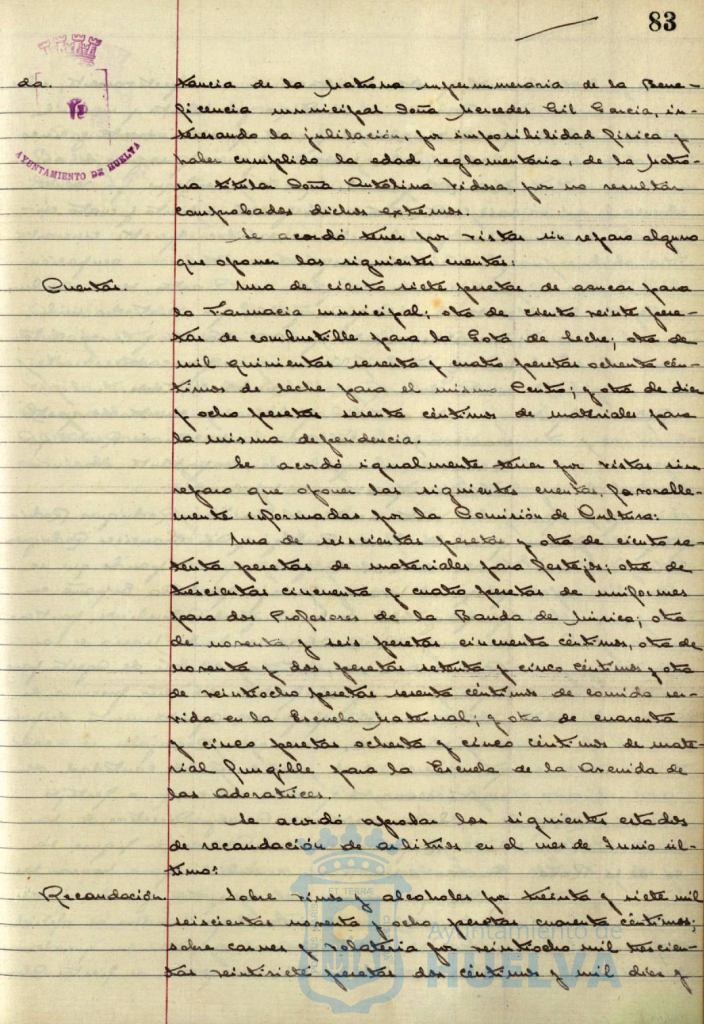 83
da.
AYUNTAMIENTO DE HUELVA
tancia de la Matrona supernumeraria de la Bene-
ficencia municipal Doña Mercedes Gil Garcia, in-
teresando la jubilación, por imposibilidad física y
haber cumplido la edad reglamentaria, de la Matro-
na titular Doña Antolina Vidosa, por no resultar
comprobados dichos extremos.
Se acordó tener por vistas sin reparo alguno
que oponer las siguientes cuentas:
Cuentas.
Una de ciento siete pesetas de azucar para
la Farmacia municipal; otra de ciento veinte pese-
tas de combustible para la Gota de leche; otra de
mil quinientas sesenta y cuatro pesetas ochenta cén-
timos de leche para el mismo Centro; y otra de diez
y ocho pesetas sesenta céntimos de materiales para
la misma dependencia.
Se acordó igualmente tener por vistas sin
reparo que oponer las siguientes cuentas, favorable-
mente informadas por la Comisión de Cultura:
Una de seiscientas pesetas y otra de ciento se-
tenta pesetas de materiales para festejos; otra de
trescientas cincuenta y cuatro pesetas de uniformes
para dos Profesores de la Banda de Música; otra
de noventa y seis pesetas cincuenta céntimos, otra de
noventa y dos pesetas setenta y cinco céntimos y otra
de veintiocho pesetas sesenta céntimos de comida ser-
vida en la Escuela Maternal; y otra de cuarenta
y cinco pesetas ochenta y cinco céntimos de mate-
rial fungible para la Escuela de la Avenida de
las Adoratrices.
Se acordó aprobar los siguientes estados
de recaudación de arbitrios en el mes de Junio úl-
timo:
Recaudación.
Sobre vinos y alcoholes por treinta y siete mil
seiscientas noventa y ocho pesetas cuarenta céntimos;
sobre carnes y volatería por veintiocho mil trescien-
tas veintisiete pesetas dos céntimos y mil diez y
Ayuntamiento de
HUELVA